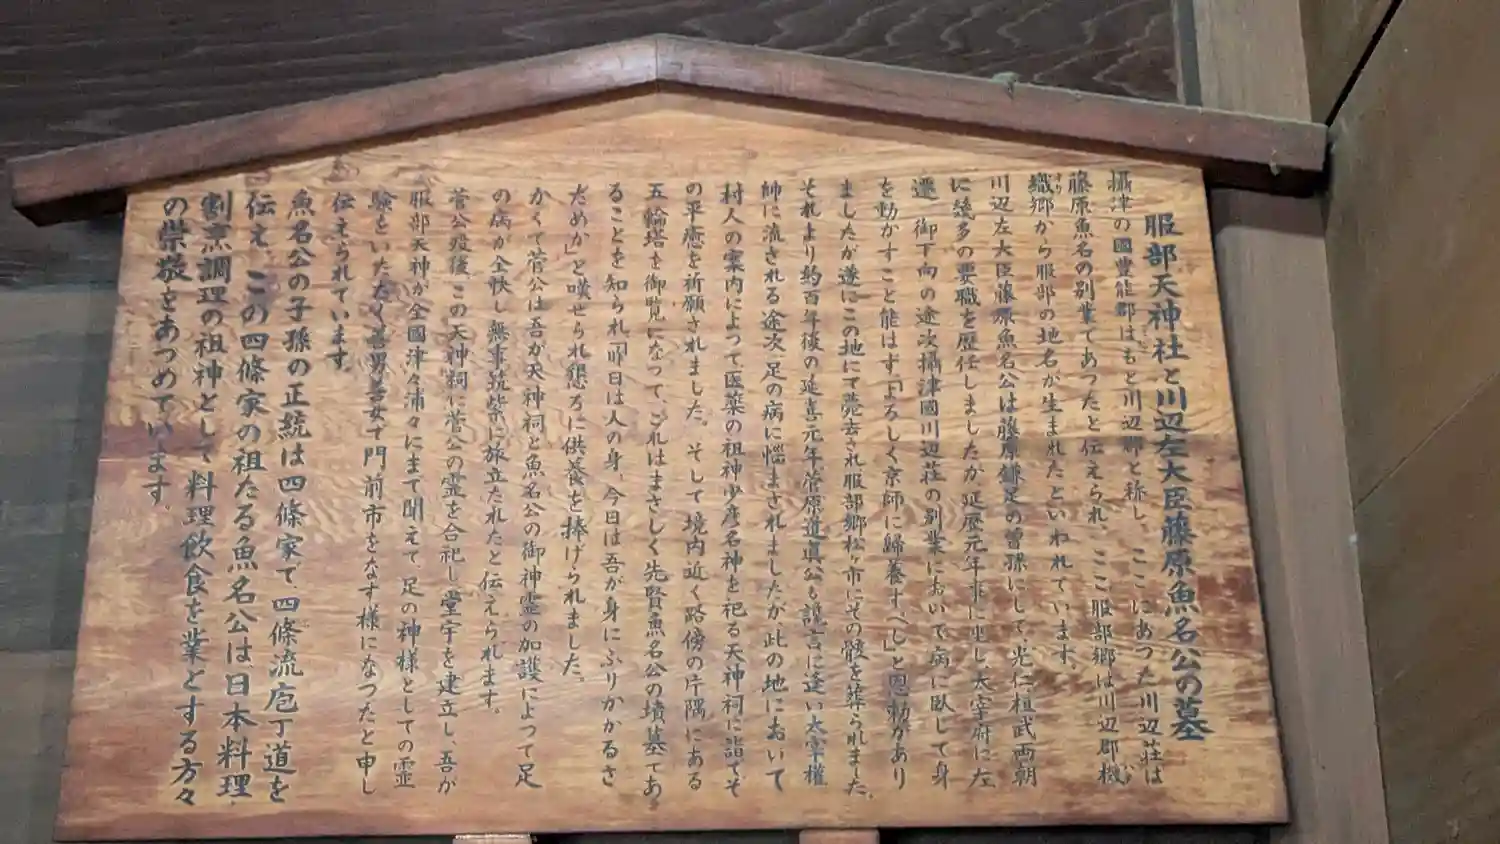 服部天神社と川辺左大臣藤原魚名公の墓
攝津の國豊能郡はもと川辺郡と称し、ここにあつた川辺荘は
藤原魚名の別業であつたと伝えられ、ここ服部郷は川辺郡機
織郷から服部の地名が生まれたといわれています。
川辺左大臣藤原魚名公は藤原鎌足の曽孫にして、光仁、桓武両朝
に幾多の要職を歴任しましたが延歴元年事に坐し、大宰府に左
遷、御下向の途次攝津國川辺荘の別業において病に臥して身
を動かすこと能はず「よろしく京師に歸へ養すべし」と恩勅があり
ましたが遂にこの地にて薨去され服部郷松ヶ市にその骸を葬られました。
それより約百年後の延喜元年菅原道真公も讒言に逢い太宰權
帥に流される途次、足の病に惱まされましたが此の地において
村人の案内によって医薬の祖神少彦名神を祀る天神祠に詣でそ
の平癒を祈願されました。そして境内近く路傍の片隅にある
五輪塔を御覧になって、これはまさしく先賢魚名公の墳墓であ
ることを知られ「昨日は人の身、今日は吾が身にふりかかるさ
だめか」と嘆せられ懇ろに供養を捧げられました。
かくて菅公は吾が天神祠と魚名公の御神霊の加護によって足
の病が全快し無事筑紫に旅立たれたと伝えられます。
菅公歿後、この天神祠に菅公の霊を合祀し堂宇を建立し、吾が
服部天神が全國津々浦々にまで聞えて、足の神様としての霊
験をいただく善男善女で門前市をなす様になつたと申し
伝えられています。
魚名公の子孫の正統は四條家で、四條流庖丁道を
伝え、この四條家の祖たる魚名公は、日本料理、
割烹調理の祖神として、料理飲食を業とする方々
の崇敬をあつめています。